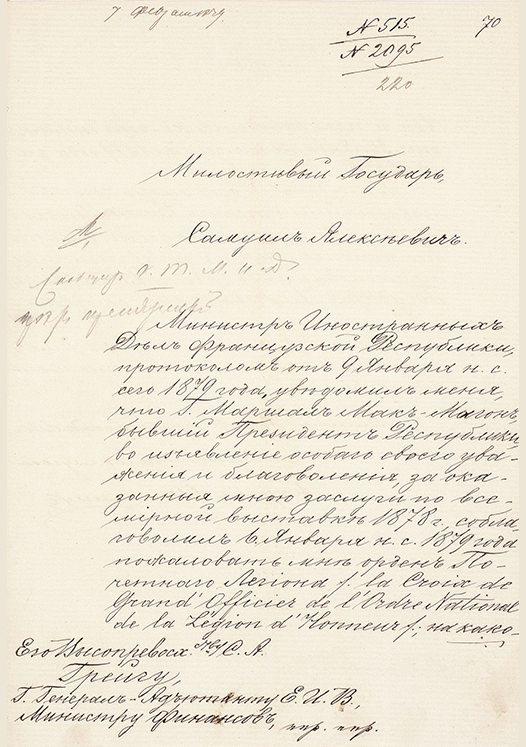 7 февраля 79
70
N 515
N 2095
220
Милостивый Государь,
Самуилъ Алексѣевичъ.
Министръ Иностранныхъ
Дѣлъ Французской Республики,
протоколомъ отъ 9 Января н. с.
сего 1879 года, увѣдомилъ меня,
что Г. Маршалъ Макъ-Магонъ,
бывшій Президентъ Республики,
во изъявленіе особаго своего ува-
женія и благоволенія, за ока-
занныя мною заслуги по все-
мірной выставкѣ 1878 г., собла-
говолилъ 6 Января н. с. 1879 года
пожаловать мнѣ орденъ По-
четнаго Легіона /: la Croix de
Grand' Officier de l'Ordre National
de la Légion d'Honneur /:; на како-
Его Высокопревосх. ству С. А.
Грейгу,
Г. Генералъ-Адъютанту Е. И. В.,
Министру Финансовъ, пр. пр.